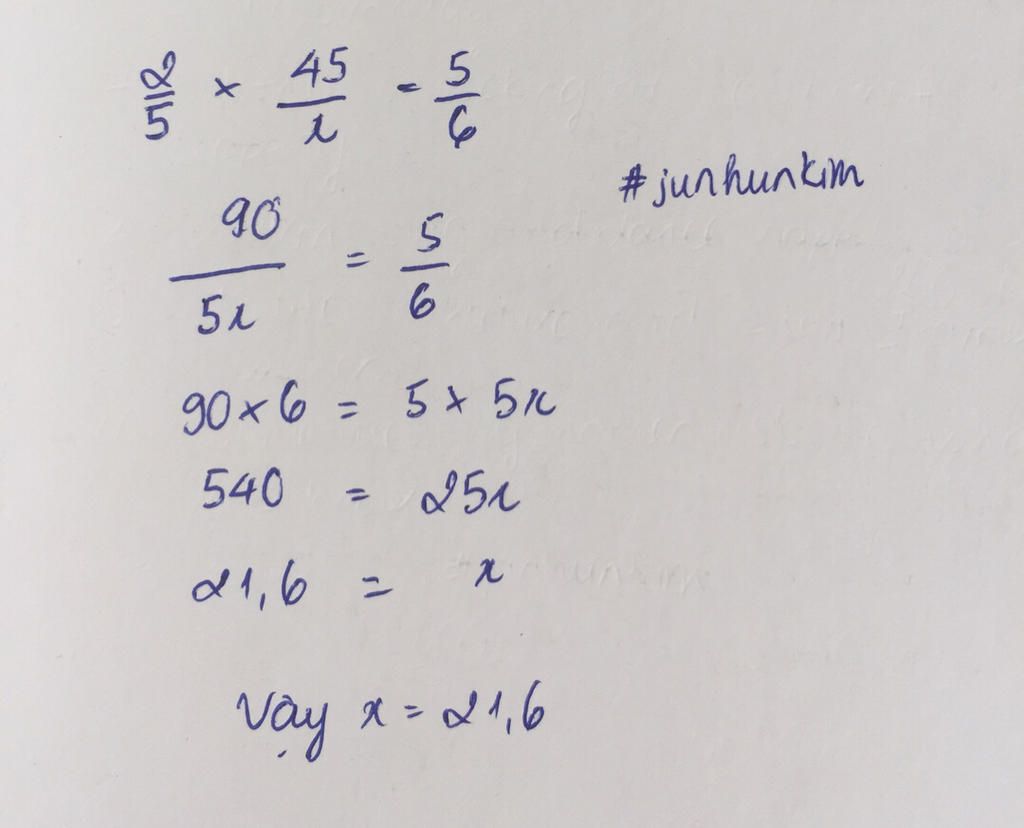 2/5 × 45/x = 5/6
#junhunkim
90/5x = 5/6
90 × 6 = 5 × 5x
540 = 25x
21,6 = x
Vậy x = 21,6